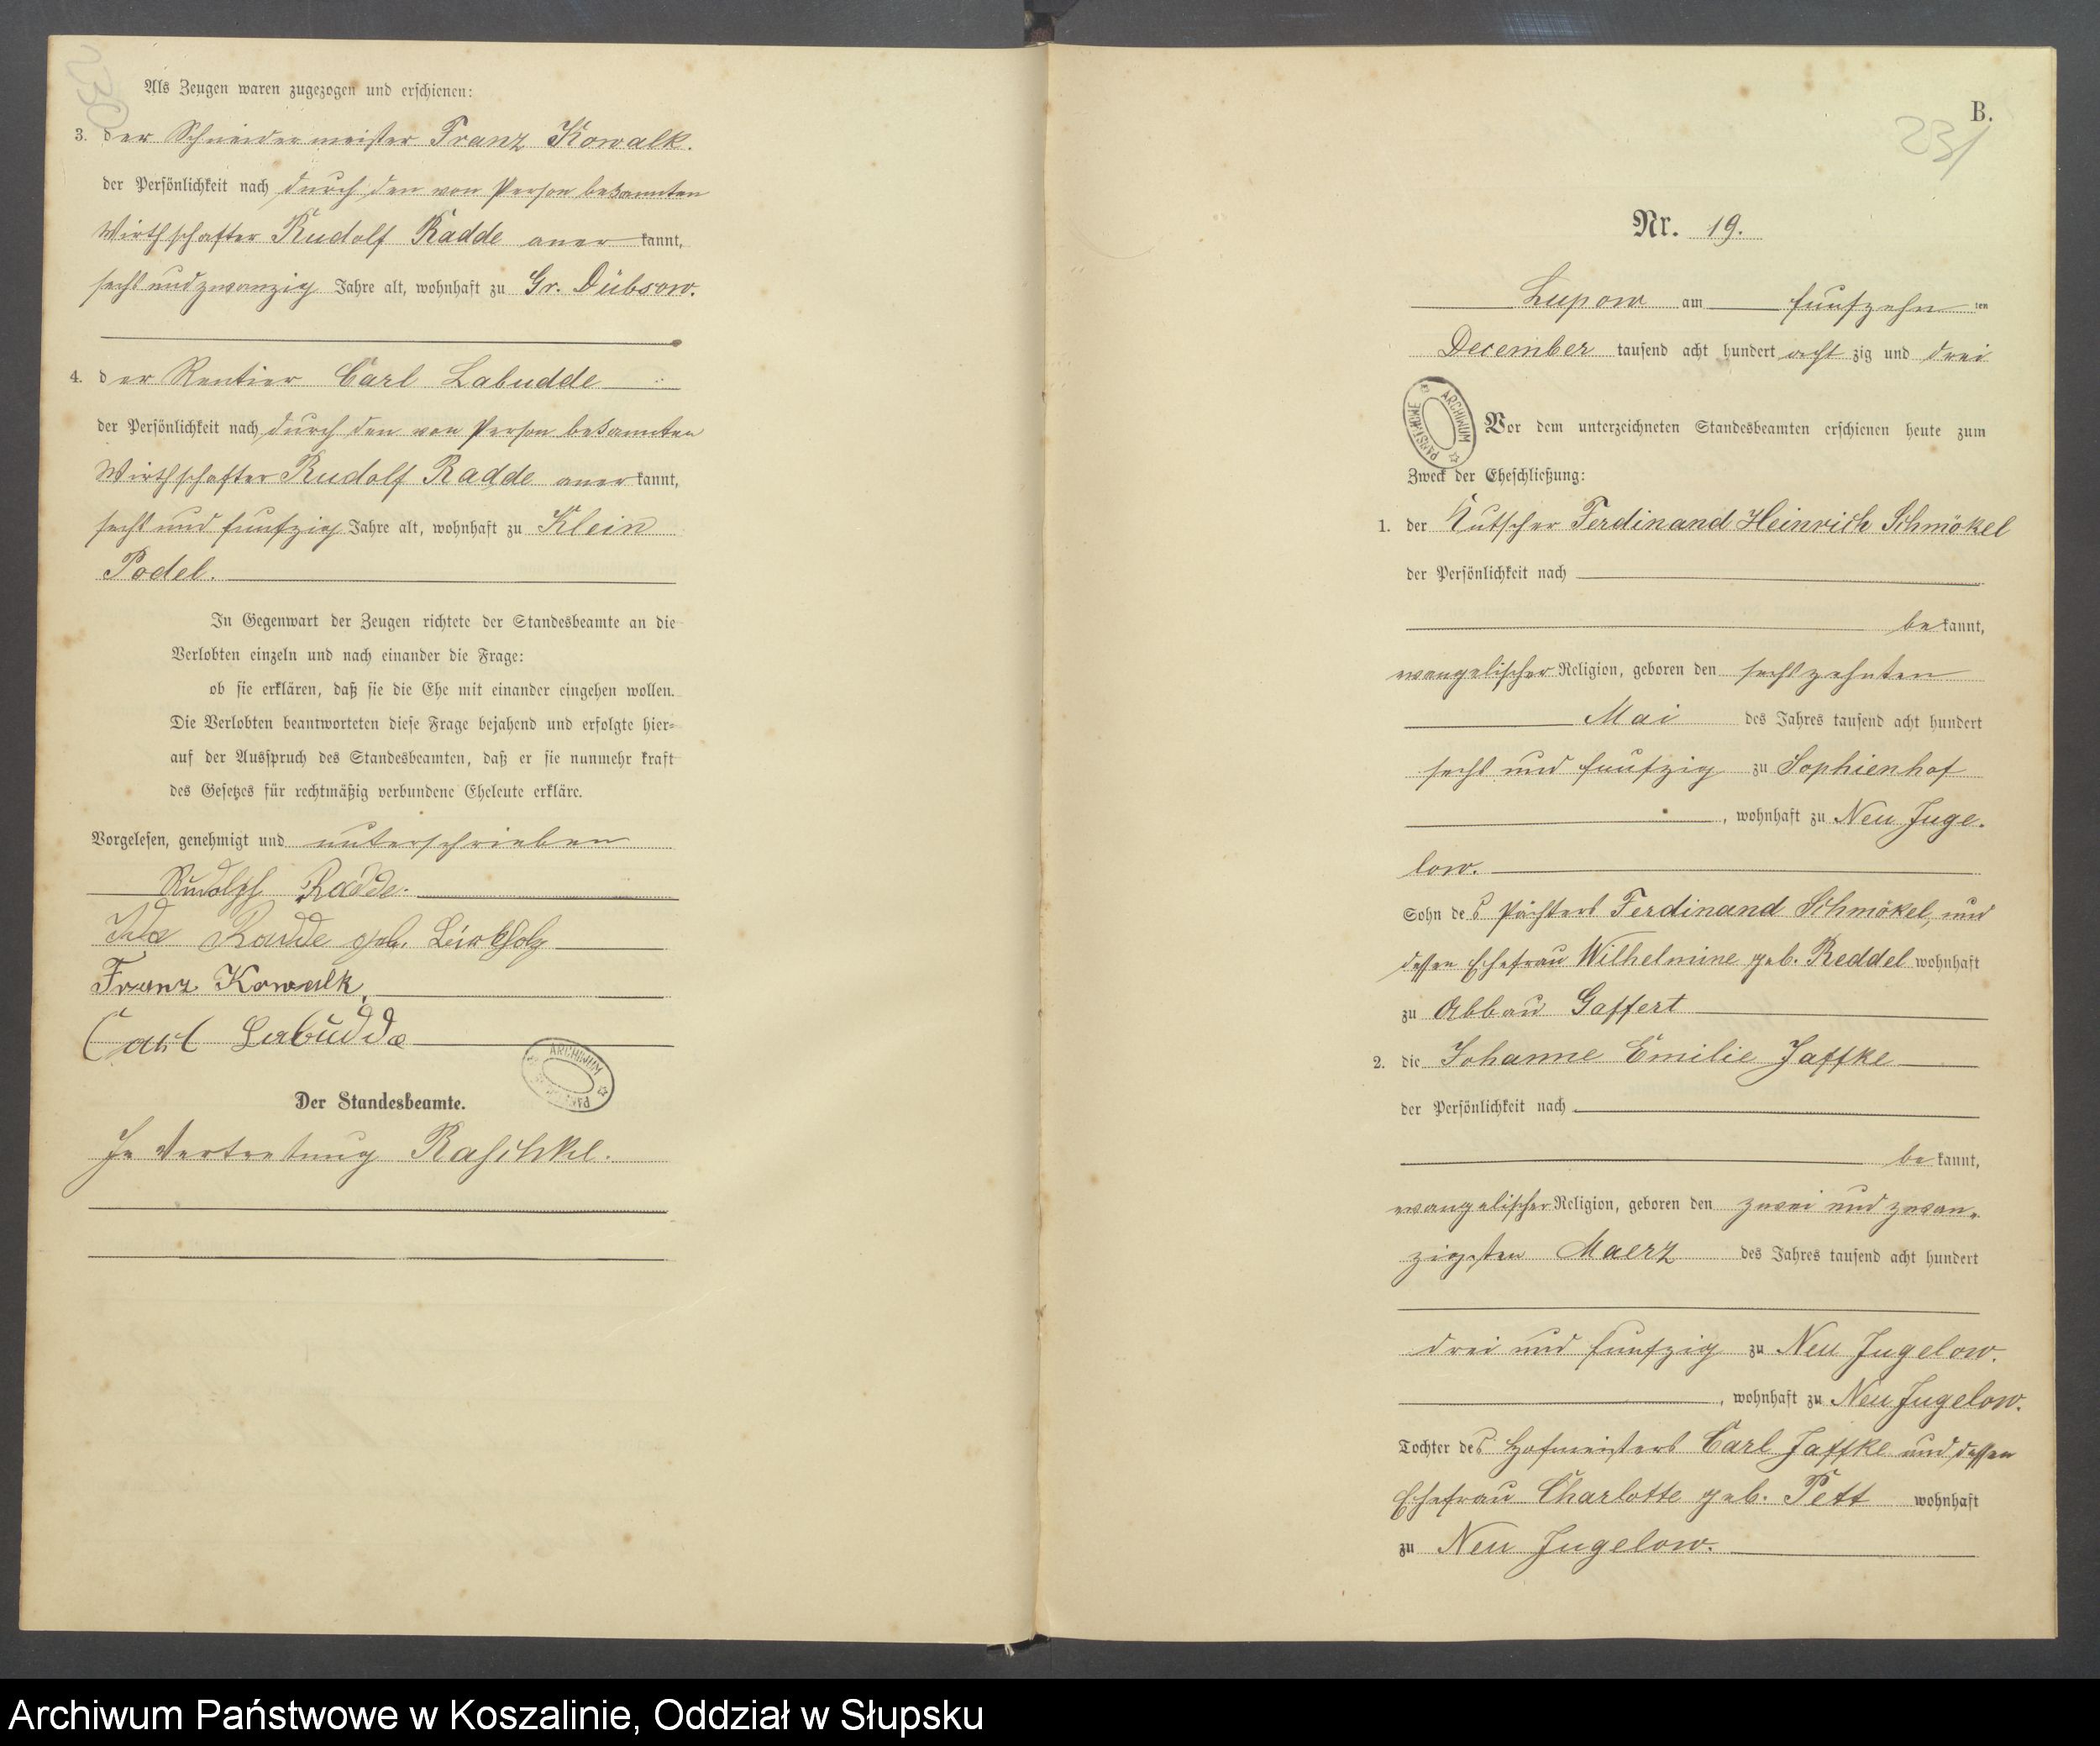 230
Als Zeugen waren zugezogen und erschienen:
3. der Schneidermeister Franz Kowalk.
der Persönlichkeit nach durch den von Person bekannten
Wirthschafter Rudolf Radde anerkannt,
sechsundzwanzig Jahre alt, wohnhaft zu Gr. Dübsow.
4. der Rentier Carl Labudde
der Persönlichkeit nach durch den von Person bekannten
Wirthschafter Rudolf Radde anerkannt,
sechs und funfzig Jahre alt, wohnhaft zu Klein
Podel.
In Gegenwart der Zeugen richtete der Standesbeamte an die
Verlobten einzeln und nach einander die Frage:
ob sie erklären, daß sie die Ehe mit einander eingehen wollen.
Die Verlobten beantworteten diese Frage bejahend und erfolgte hier=
auf der Ausspruch des Standesbeamten, daß er sie nunmehr kraft
des Gesetzes für rechtmäßig verbundene Eheleute erkläre.
Vorgelesen, genehmigt und unterschrieben
Rudolph Radde.
Ida Radde geb.
Franz Kowalk,
Carl Labudde
ARCHIWUM
Der Standesbeamte.
In Vertretung Raschke.
B.
231
Nr. 19.
Lupow am funfzehnten
December tausend acht hundert achtzig und drei
ARCHIWUM PAŃSTWOWE
Vor dem unterzeichneten Standesbeamten erschienen heute zum
Zweck der Eheschließung:
1. der Kutscher Ferdinand Heinrich Schmökel
der Persönlichkeit nach
bekannt,
evangelischer Religion, geboren den sechszehnten
Mai des Jahres tausend acht hundert
sechs und funfzig zu Sophienhof
, wohnhaft zu Neu Juge-
low.
Sohn des Pächters Ferdinand Schmökel, und
dessen Ehefrau Wilhelmine geb. Reddel wohnhaft
zu Abbau Gaffert
2. die Johanne Emilie Jaffke
der Persönlichkeit nach
bekannt,
evangelischer Religion, geboren den zwei und zwan-
zigsten Maerz des Jahres tausend acht hundert
drei und funfzig zu Neu Jugelow.
, wohnhaft zu Neu Jugelow.
Tochter des Hofmeisters Carl Jaffke und dessen
Ehefrau Charlotte geb. Pett wohnhaft
zu Neu Jugelow.
Archiwum Państwowe w Koszalinie, Oddział w Słupsku